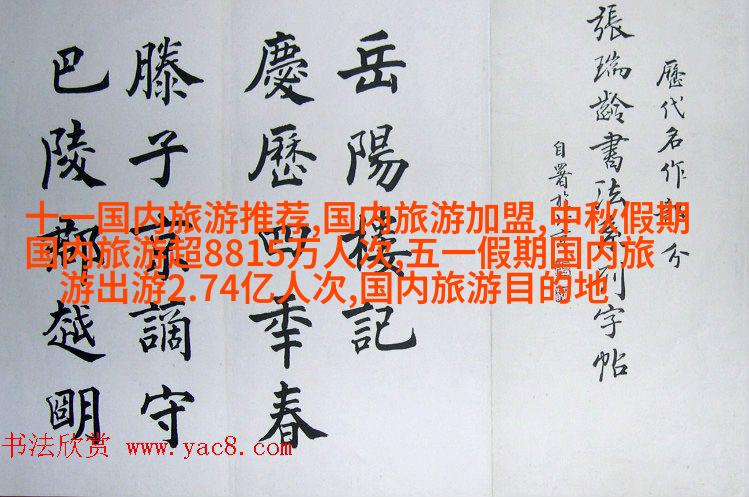 歷代名作部分
張瑞齡書法系列字帖
自署
岳陽樓記
慶歷四年春
滕子京謫守
巴陵郡越朙
十一国内旅游推荐,国内旅游加盟,中秋假期
国内旅游超8815万人次,五一假期国内旅
游出游2.74亿人次,国内旅游目的地
书法欣赏 www.yac8.com